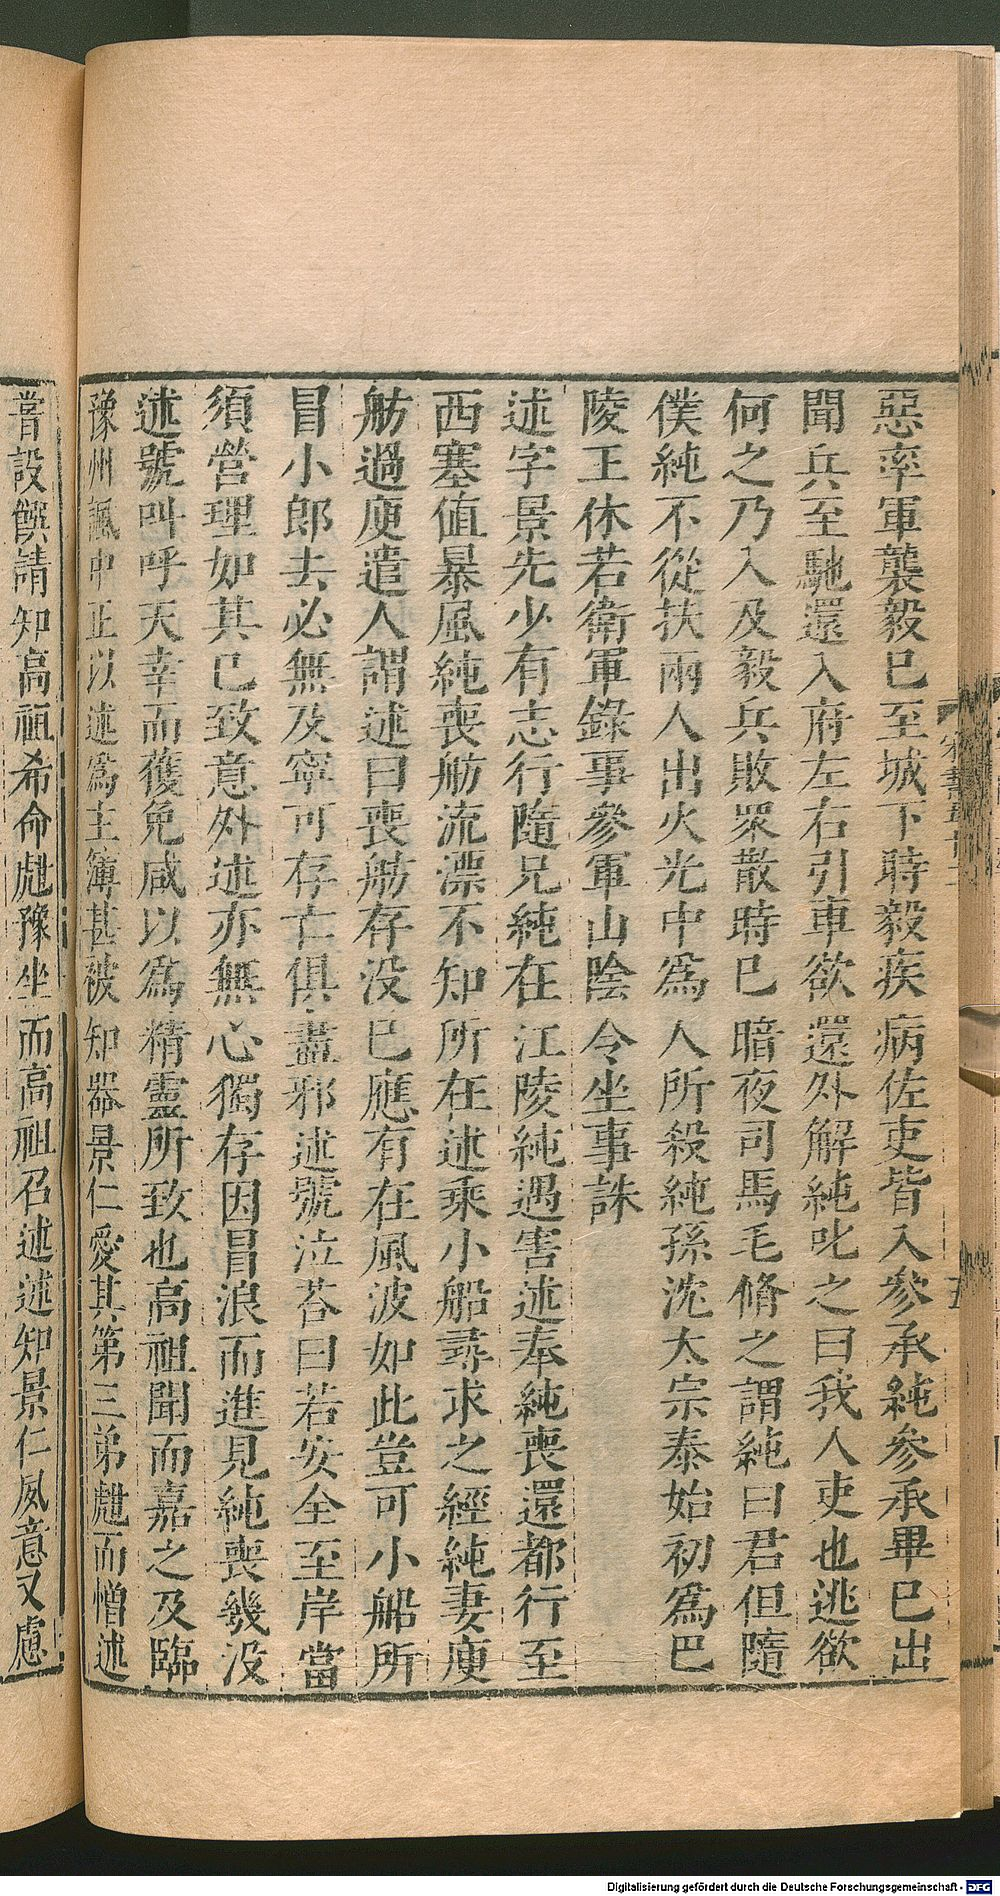 惡率軍襲毅已至城下時毅疾病佐吏皆入參承純參承畢已出
聞兵至馳還入府左右引車欲還外解純叱之曰我人吏也逃欲
何之乃入及毅兵敗衆散時已暗夜司馬毛脩之謂純曰君但隨
僕純不從扶兩人出火光中爲人所殺純孫沈太宗泰始初爲巴
陵王休若衛軍錄事參軍山陰令坐事誅
述字景先少有志行隨兄純在江陵純遇害述奉純喪還都行至
西塞值暴風純喪舫流漂不知所在述乘小船尋求之經純妻庾
舫過庾遣人謂述曰喪舫存没已應有在風波如此豈可小船所
冒小郎去必無及寧可存亡俱盡邪述號泣荅曰若安全至岸當
須營理如其已致意外述亦無心獨存因冒浪而進見純喪幾没
述號叫呼天幸而獲免咸以爲精靈所致也高祖聞而嘉之及臨
豫州諷中正以述爲主簿甚被知器景仁愛其第三弟甝而憎述
嘗設饌請知高祖希命甝豫坐而高祖召述述知景仁夙意又慮
宋書
Digitalisierung gefördert durch die Deutsche Forschungsgemeinschaft - DFG